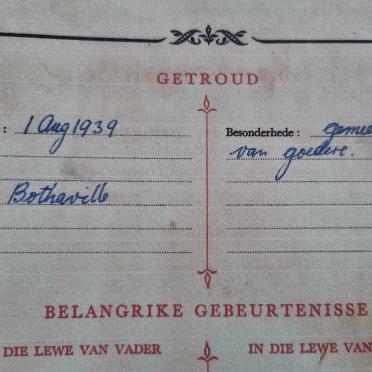 GETROUD
: 1 Aug 1939
Besonderhede : gemee
van goedere.
Bothaville
BELANGRIKE GEBEURTENISSE
DIE LEWE VAN VADER
IN DIE LEWE VAN